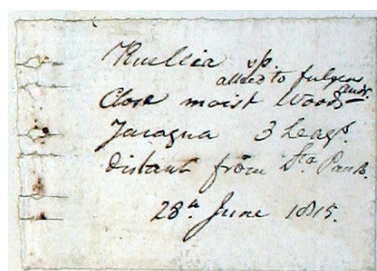 Ruellia sp.
allied to fulgens
Andr.
Close moist Woods
Jaragua 3 Leags.
distant from Sto. Paulo.
28th. June 1815.